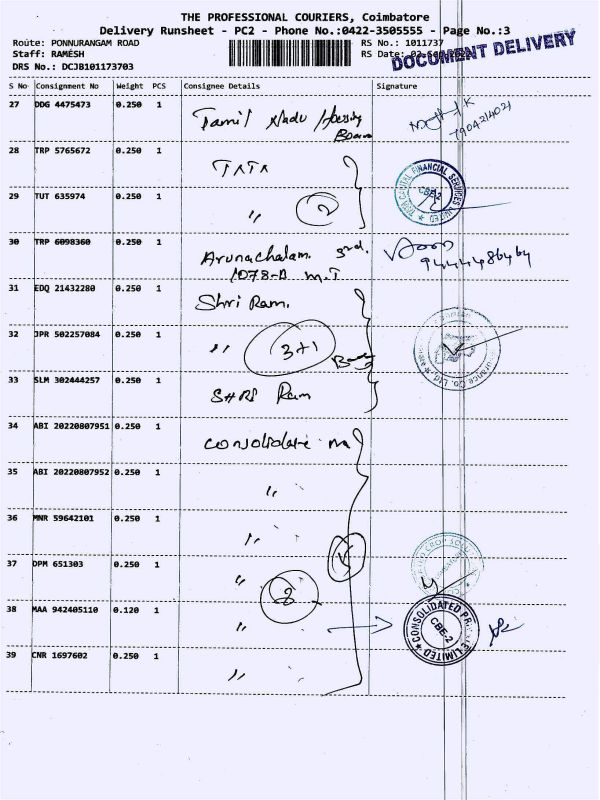 THE PROFESSIONAL COURIERS, Coimbatore
Delivery Runsheet - PC2 - Phone No.:0422-3505555 - Page No.:3
Route: PONNURANGAM ROAD
Staff: RAMESH
DRS No.: DCJB101173703
RS No.: 1011737
RS Date:
DOCUMENT DELIVERY
S No Consignment No Weight PCS Consignee Details Signature
27 DDG 4475473 0.250 1 Tamil Nadu Housing
Board
7904214021
28 TRP 5765672 0.250 1 TATA
TATA CAPITAL FINANCIAL SERVICES LIMITED
CBE-2
29 TUT 635974 0.250 1 " 2
30 TRP 6098360 0.250 1 Arunachalam 3rd.
1078-D M.T
31 EDQ 21432280 0.250 1 Shri Ram.
32 JPR 502257084 0.250 1 " 3+1
33 SLM 302444257 0.250 1 SHRI Ram
34 ABI 20220807951 0.250 1 Consolidate
35 ABI 20220807952 0.250 1 "
36 MNR 59642101 0.250 1 "
37 DPM 651303 0.250 1 "
8
38 MAA 942405110 0.120 1 "
CONSOLIDATED LIMITED
CBE-2
39 CNR 1697602 0.250 1 "